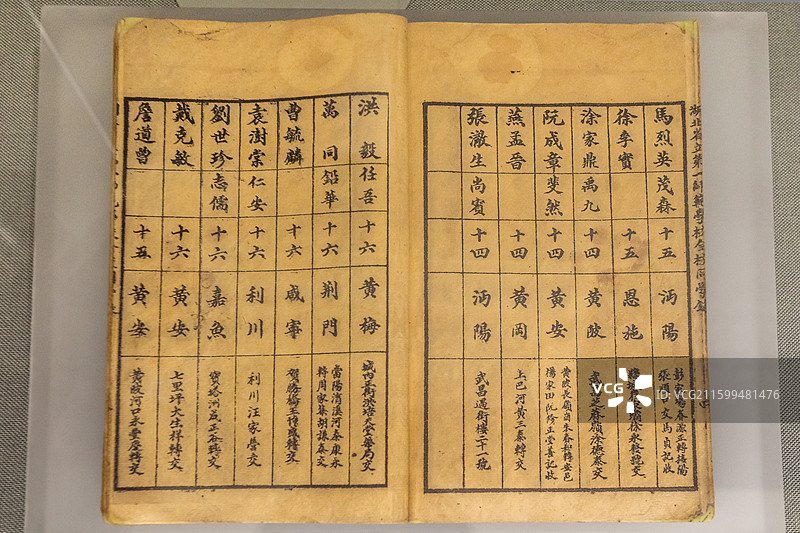 湖北省立第一師範學校全校同學錄
馬烈英 茂森 十五 沔陽
徐李實 十五 恩施
涂家鼎 禹九 十四 黃陂
阮成章 斐然 十四 黃安 黃陂長嶺崗朱春和轉安邑楊家田阮修正堂善記收
燕孟晉 十四 黃岡 上巴河黃三泰轉交
張瀲生 尚賓 十四 沔陽 武昌過街樓二十一號
洪毅 任吾 十六 黃梅
萬同 鉛華 十六 荆門 當陽消溪河泰康永轉周家集胡謙泰交
曹毓麟 十六 咸寧 賀勝橋王博義轉交
袁澍棠 仁安 十六 利川 利川汪家營交
劉世珍 志儒 十六 嘉魚 寶塔洲
戴克敏 十六 黃安 七里坪大生祥轉交
詹道曹 十五 黃安 黃陂河口永
vcg VCG211599481476